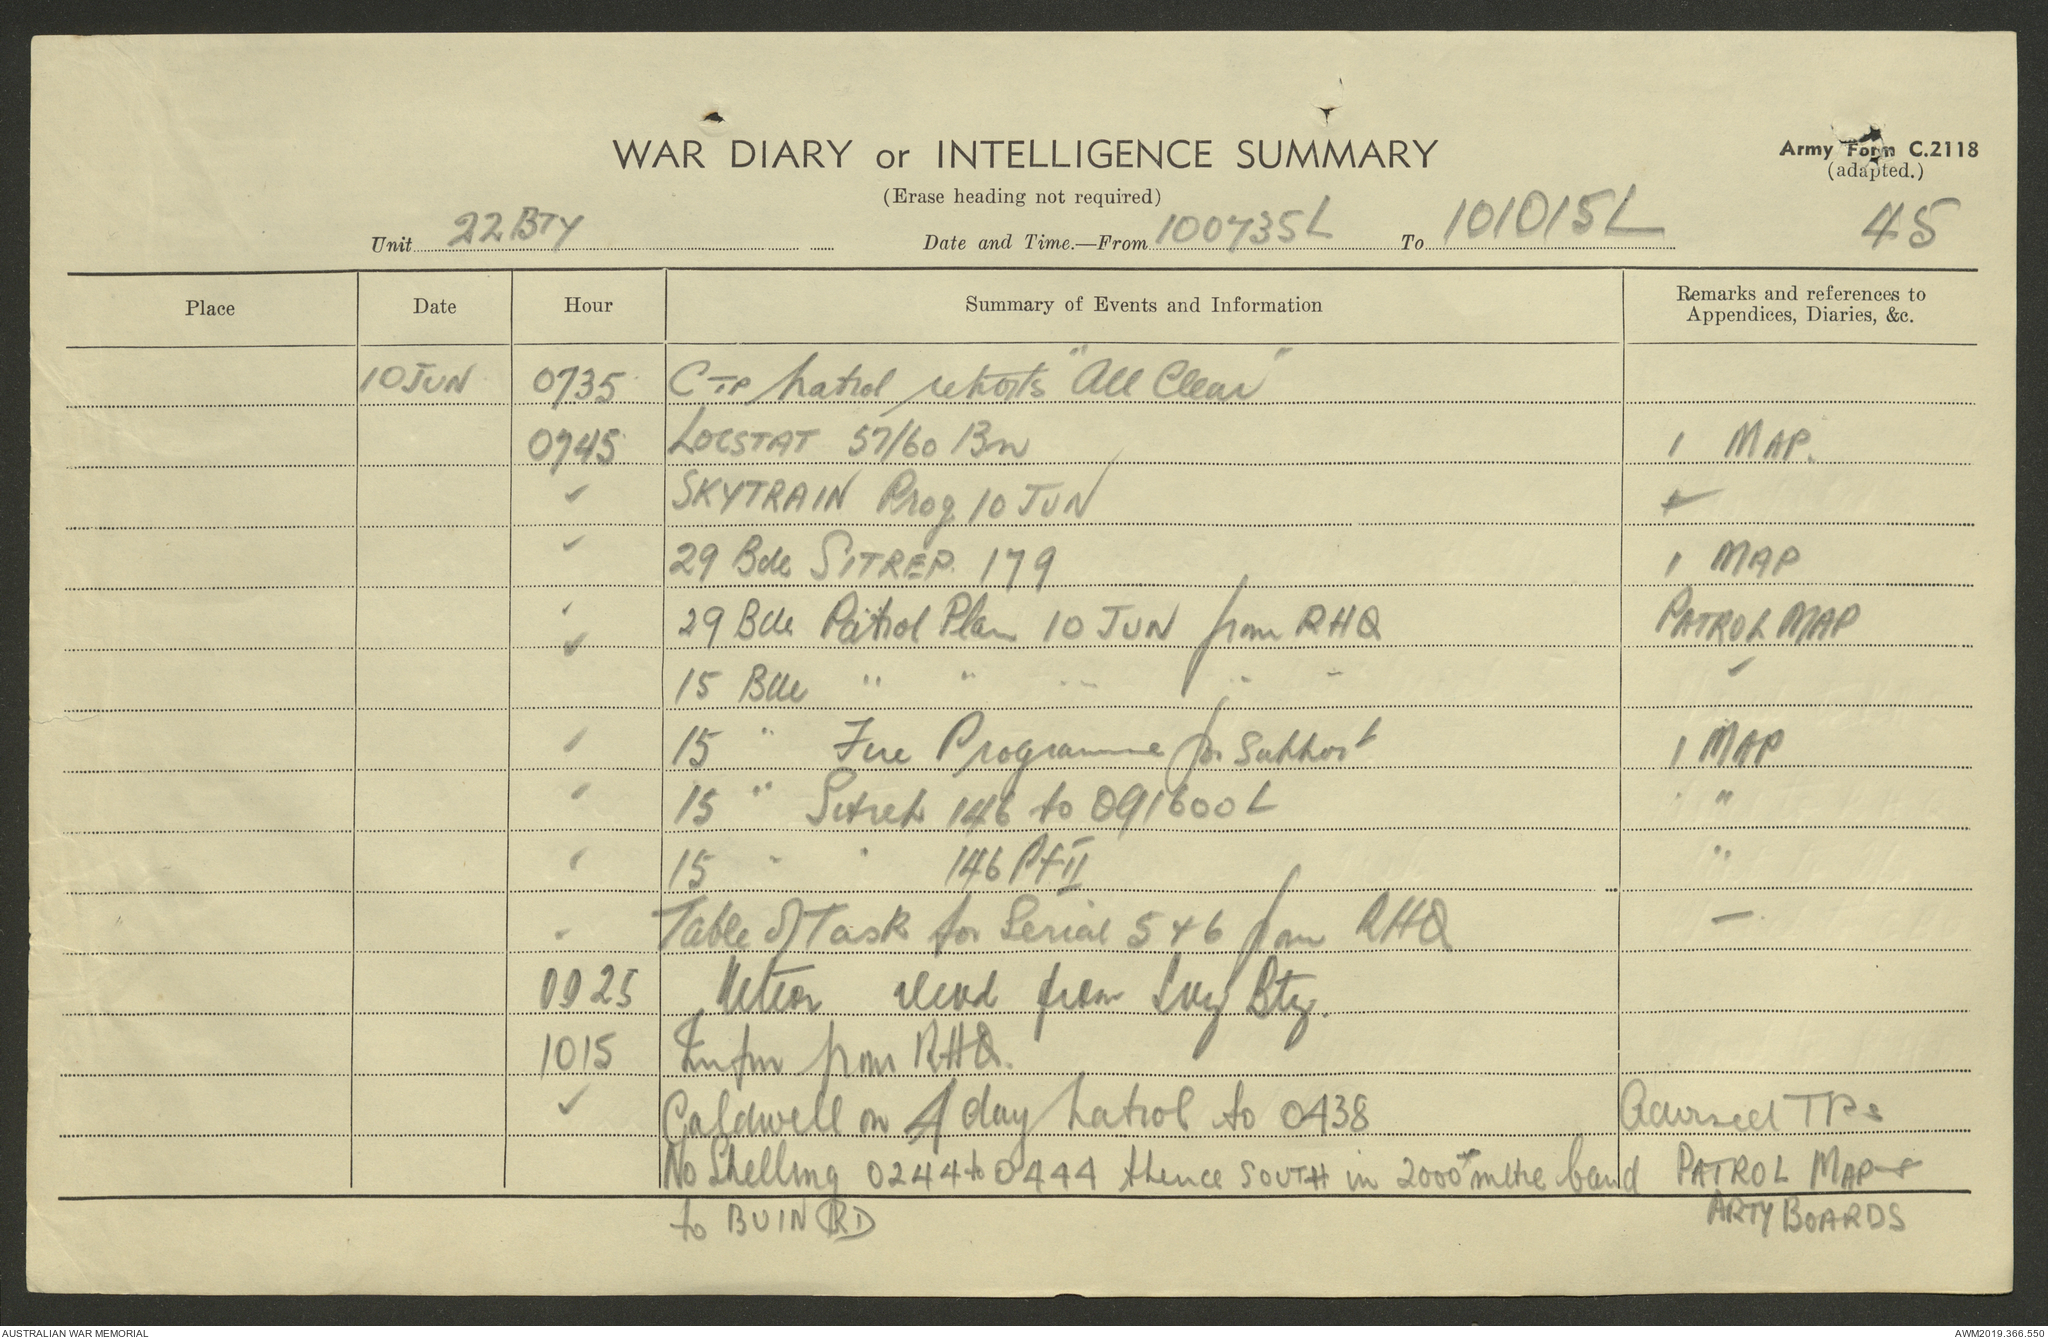 WAR DIARY or INTELLIGENCE SUMMARY
Army Form C.2118
(Erase heading not required)
(adapted.)
Unit 22 BTY Date and Time.—From 100735L To 101015L 45
Place Date Hour Summary of Events and Information Remarks and references to
Appendices, Diaries, &c.
10 JUN 0735 C TP patrol reports "All Clear"
0745 LOCSTAT 57/60 Bn 1 MAP.
✓ SKYTRAIN Prog 10 JUN
✓ 29 Bde SITREP. 179 1 MAP
29 Bde Patrol Plan 10 JUN from RHQ PATROL MAP
✓ 15 Bde " " " " " ✓
15 " Fire Programme for Support 1 MAP
15 " Sitrep 146 to 091600L "
15 " " 146 Pt II "
Table of Task for Serial 546 from RHQ —
0925 Meteor from Svy Bty.
1015 Infm from RHQ.
✓ Caldwell on 4 day patrol to 0438 Advised TPs
No Shelling 0244 to 0444 thence SOUTH in 2000x metre band PATROL MAP +
to BUIN RD ARTY BOARDS
AUSTRALIAN WAR MEMORIAL AWM2019.366.550